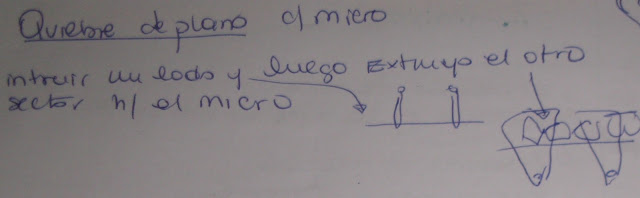 Quiebre de plano c/ micro
intruir un lado y luego Extruyo el otro
sector h/ el micro